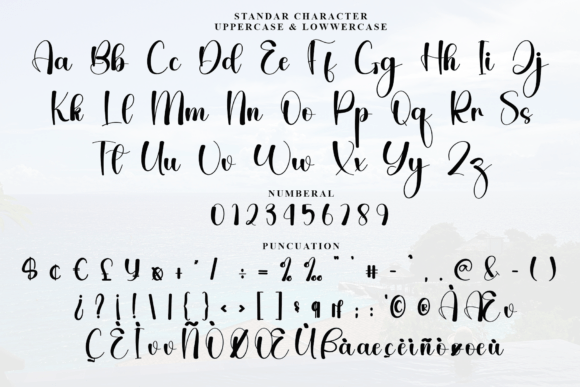 STANDAR CHARACTER
UPPERCASE & LOWWERCASE
Aa Bb Cc Dd Ee Ff Gg Hh Ii Jj
Kk Ll Mm Nn Oo Pp Qq Rr Ss
Tt Uu Vv Ww Xx Yy Zz
NUMBERAL
0123456789
PUNCUATION
$ ¢ € £ ¥ ¤ + ' / ÷ = % ‰ " ' # - ` , . @ & - ( )
¿ ? ¡ ! \ | { } < > [ ] § ¶ ; : ' © ® À Æ
Ç È Ì Ñ Ò Ø Œ Ù ß à æ ç è ì ñ ò ø œ ù